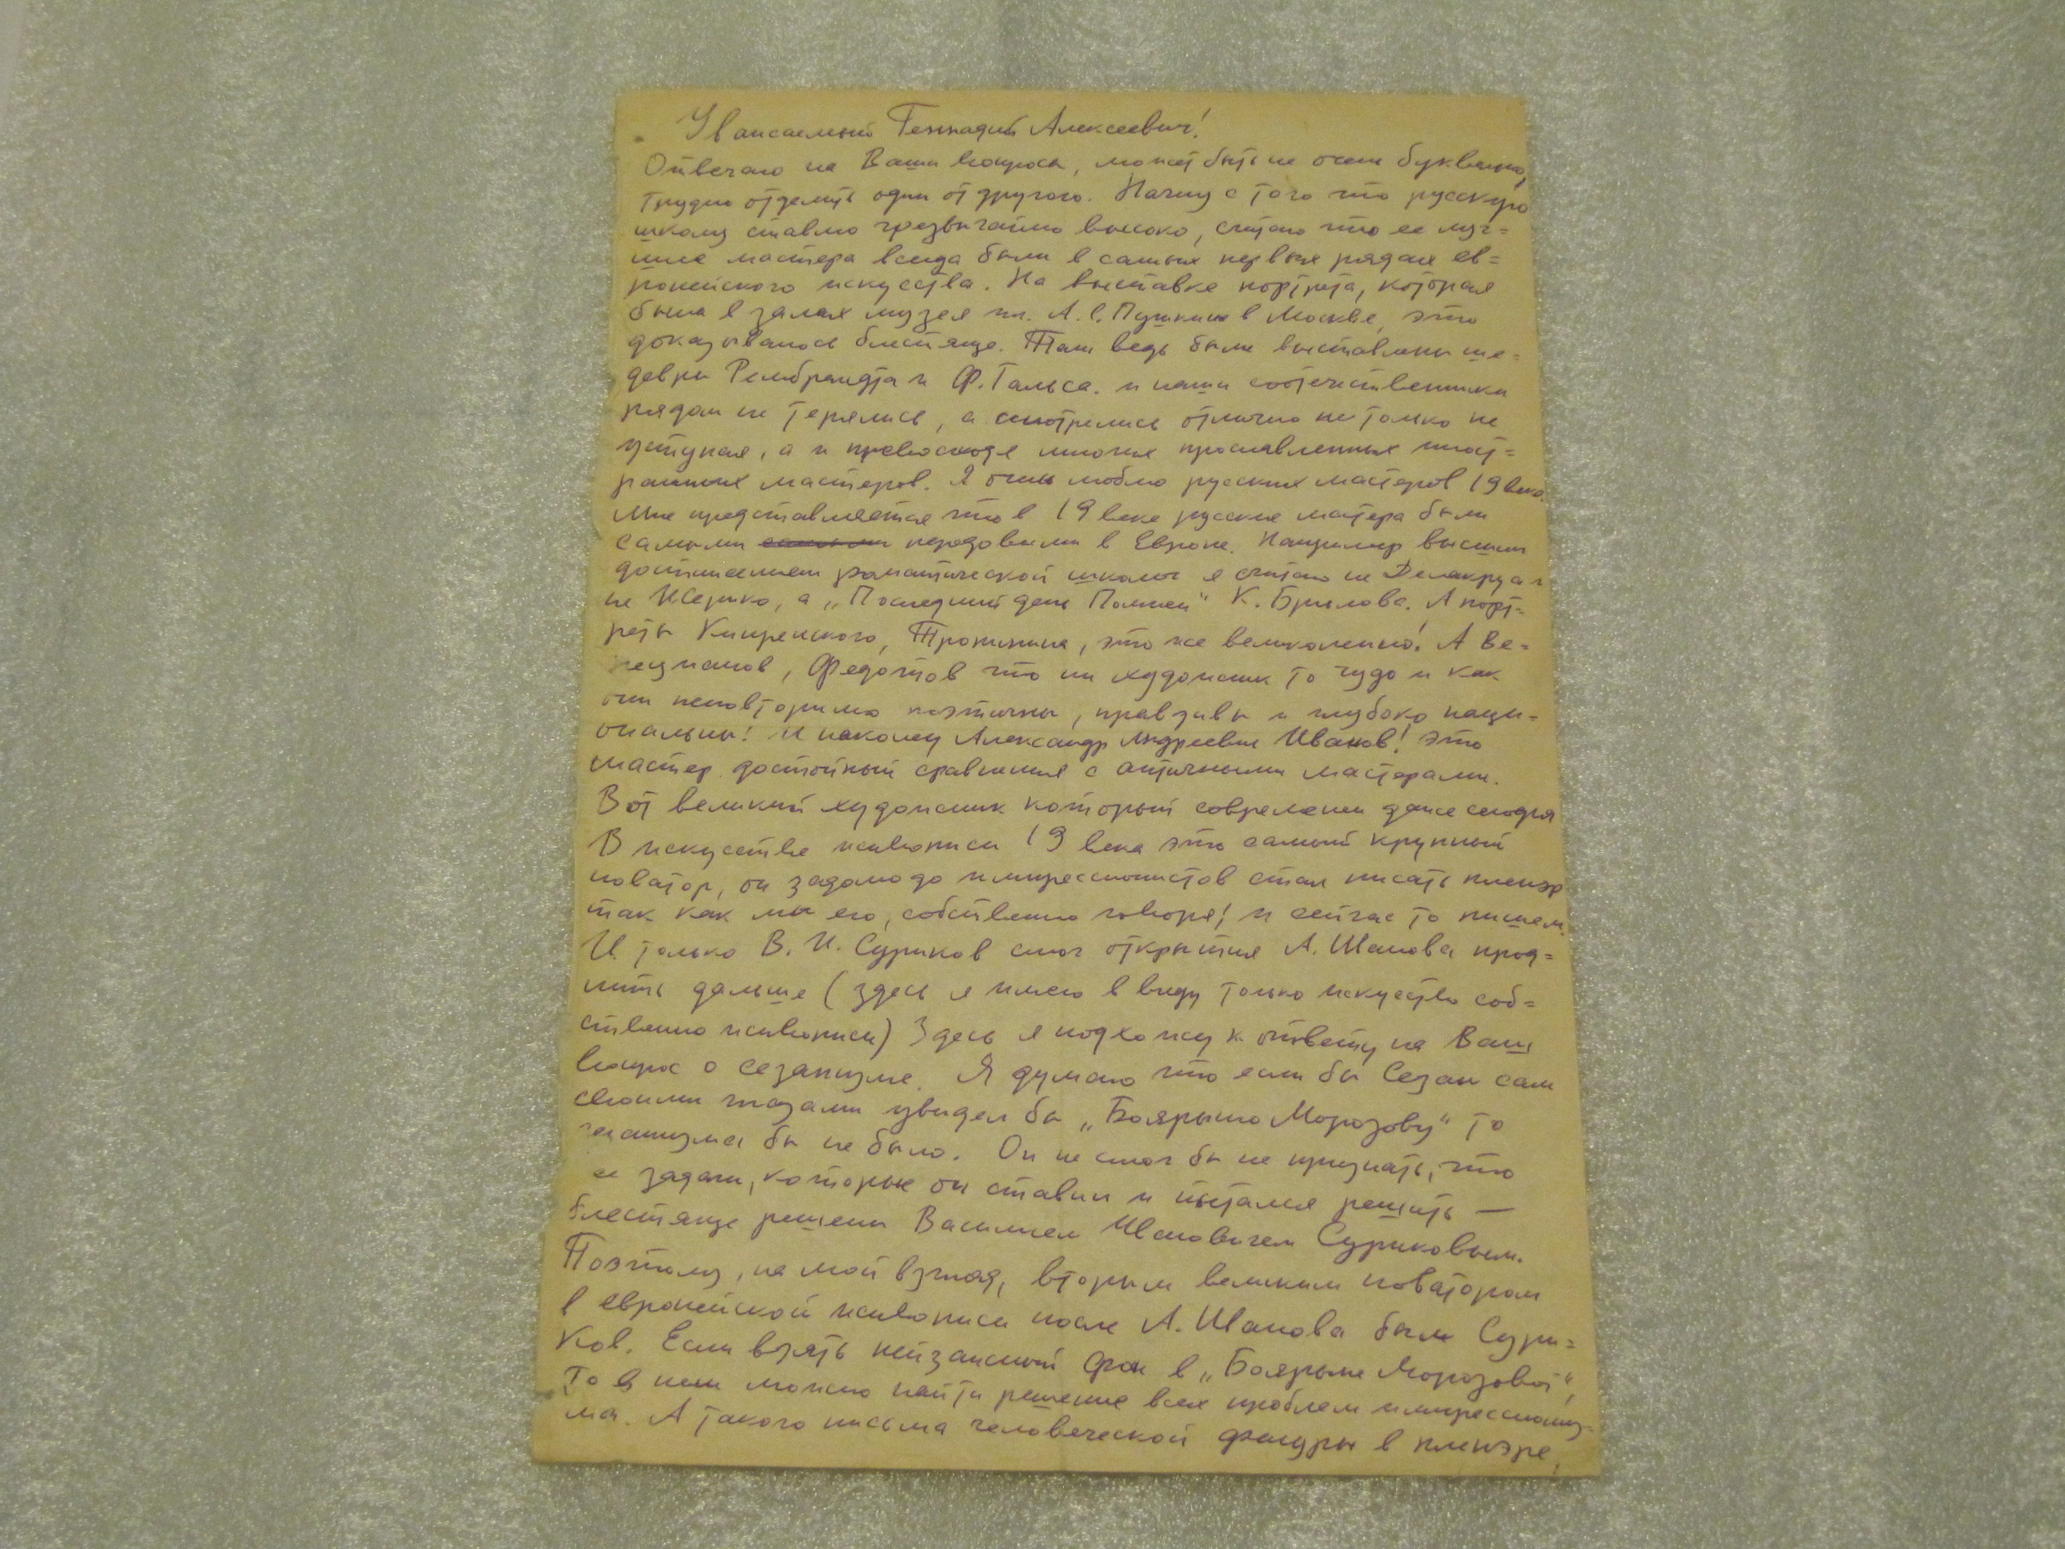 Уважаемый Геннадий Алексеевич!
Отвечаю на Ваши вопросы, может быть не очень буквально,
трудно отделить один от другого. Начну с того что русскую
школу ставлю чрезвычайно высоко, считаю что ее луч=
шие мастера всегда были в самых первых рядах ев=
ропейского искусства. На выставке портрета, которая
была в залах музея им. А.С. Пушкина в Москве, это
доказывалось блестяще. Там ведь были выставлены ше=
девры Рембрандта и Ф. Гальса. и наши соотечественники
рядом не терялись, а смотрелись отлично не только не
уступая, а и превосходя многих прославленных иност=
ранных мастеров. Я очень люблю русских мастеров 19 века.
Мне представляется что в 19 веке русские мастера были
самыми передовыми в Европе. Например высшим
достижением романтической школы я считаю не Делакруа и
не Жерико, а „Последний день Помпеи" К. Брюлова. А порт=
реты Кипренского, Тропинина, это же великолепно! А Ве=
нецианов, Федотов что ни художник то чудо и как
они неповторимо поэтичны, правдивы и глубоко наци=
ональны! И наконец Александр Андреевич Иванов! это
мастер достойный сравнения с античными мастерами.
Вот великий художник который современен даже сегодня
В искусстве живописи 19 века это самый крупный
новатор, он задолго до импрессионистов стал писать пленэр
так как мы его, собственно говоря, и сейчас то пишем.
И только В. И. Суриков смог открытия А. Иванова прод=
лить дальше (здесь я имею в виду только искусство соб=
ственно живописи) Здесь я подхожу к ответу на Ваш
вопрос о сезанизме. Я думаю что если бы Сезан сам
своими глазами увидел бы „Боярыню Морозову" то
сезанизма бы не было. Он не смог бы не признать, что
все задачи, которые он ставил и пытался решить —
блестяще решены Василием Ивановичем Суриковым.
Поэтому, на мой взгляд, вторым великим новатором
в европейской живописи после А. Иванова был Сури=
ков. Если взять пейзажный фон в „Боярыне Морозовой",
то в нем можно найти решение всех проблем импрессиониз=
ма. А такого письма человеческой фигуры в пленэре,